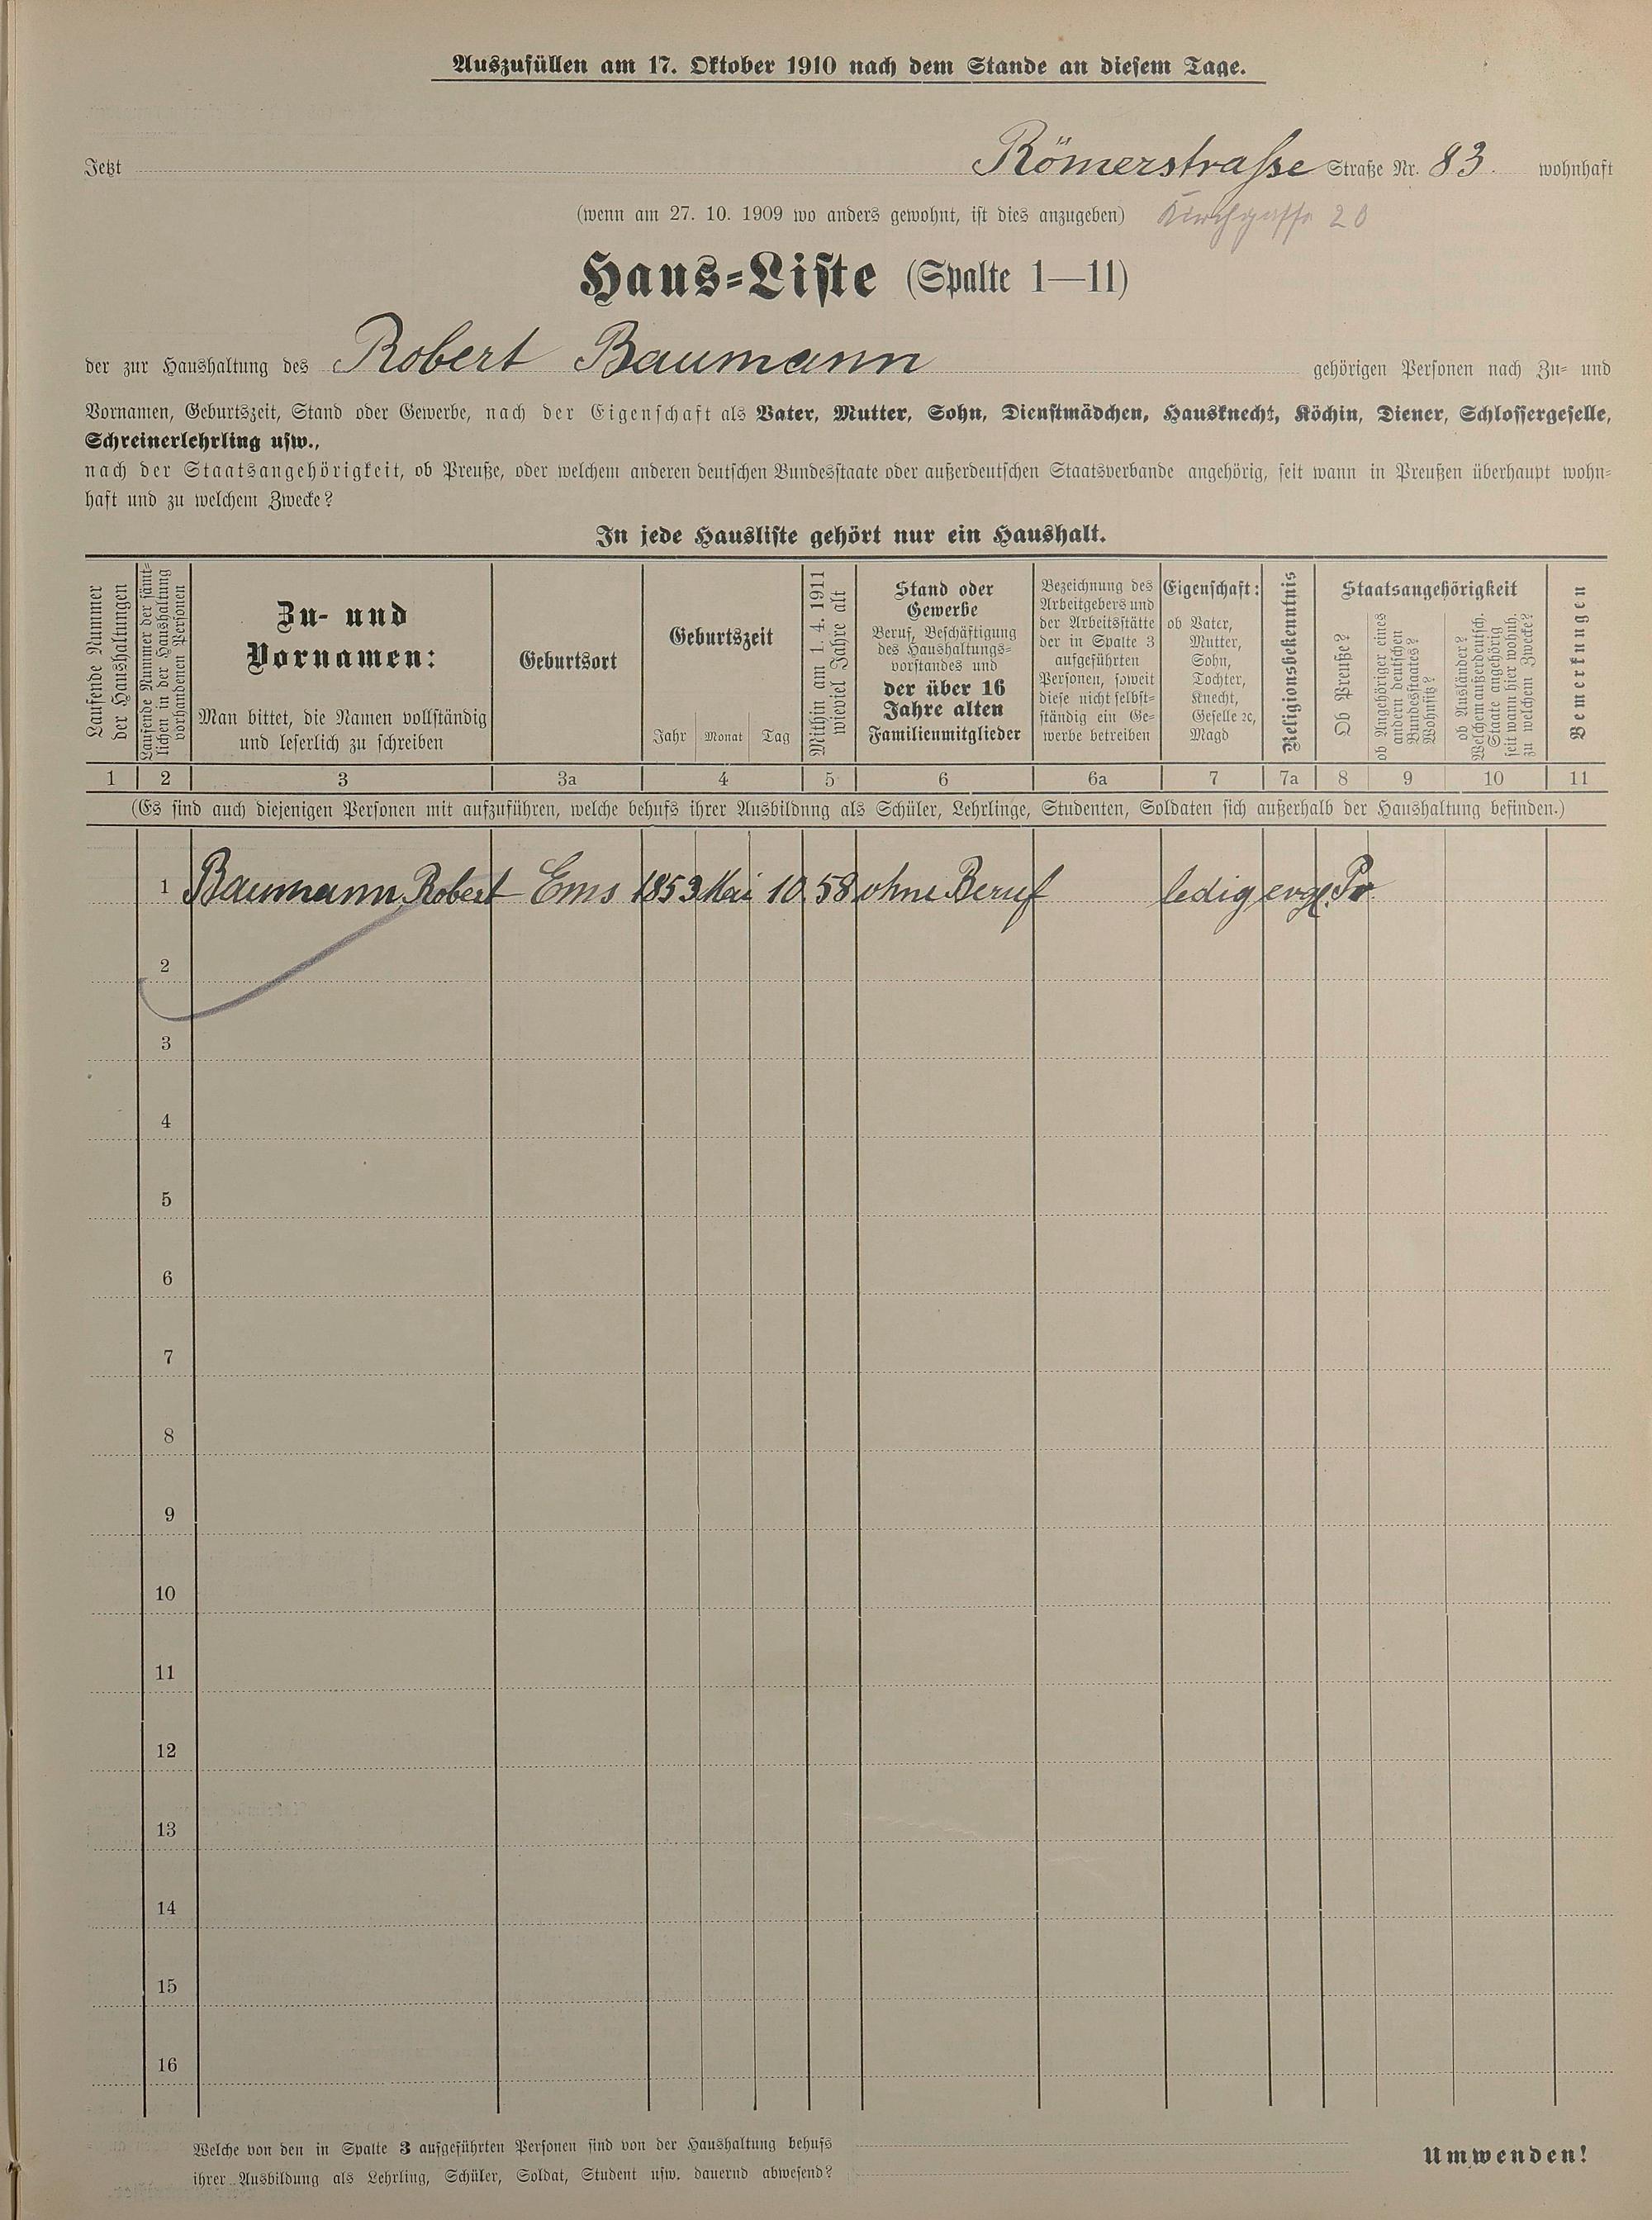 Auszufüllen am 17. Oktober 1910 nach dem Stande an diesem Tage.
Jetzt Römerstrasse Straße Nr. 83. wohnhaft
(wenn am 27. 10. 1909 wo anders gewohnt, ist dies anzugeben) Kirchgasse 20
Haus=Liste (Spalte 1—11)
der zur Haushaltung des Robert Baumann gehörigen Personen nach Zu= und
Vornamen, Geburtszeit, Stand oder Gewerbe, nach der Eigenschaft als Vater, Mutter, Sohn, Dienstmädchen, Hausknecht, Köchin, Diener, Schlossergeselle,
Schreinerlehrling usw.,
nach der Staatsangehörigkeit, ob Preuße, oder welchem anderen deutschen Bundesstaate oder außerdeutschen Staatsverbande angehörig, seit wann in Preußen überhaupt wohn=
haft und zu welchem Zwecke?
In jede Hausliste gehört nur ein Haushalt.
Laufende Nummer
der Haushaltungen
Laufende Nummer der sämt=
lichen in der Haushaltung
vorhandenen Personen
Zu- und
Vornamen:
Man bittet, die Namen vollständig
und leserlich zu schreiben
Geburtsort
Geburtszeit
Jahr Monat Tag
Mithin am 1. 4. 1911
wieviel Jahre alt
Stand oder
Gewerbe
Beruf, Beschäftigung
des Haushaltungs=
vorstandes und
der über 16
Jahre alten
Familienmitglieder
Bezeichnung des
Arbeitgebers und
der Arbeitsstätte
der in Spalte 3
aufgeführten
Personen, soweit
diese nicht selbst=
ständig ein Ge=
werbe betreiben
Eigenschaft:
ob Vater,
Mutter,
Sohn,
Tochter,
Knecht,
Geselle ꝛc,
Magd
Religionsbekenntnis
Staatsangehörigkeit
Ob Preuße?
ob Angehöriger eines
andern deutschen
Bundesstaates?
Wohnsitz?
ob Ausländer?
Welchem außerdeutsch.
Staate angehörig
seit wann hier wohnh.
zu welchem Zwecke?
Bemerkungen
1 2 3 3a 4 5 6 6a 7 7a 8 9 10 11
(Es sind auch diejenigen Personen mit aufzuführen, welche behufs ihrer Ausbildung als Schüler, Lehrlinge, Studenten, Soldaten sich außerhalb der Haushaltung befinden.)
1 Baumann, Robert Ems 1853 Mai 10. 58 ohne Beruf ledig evgl. Pr.
2
3
4
5
6
7
8
9
10
11
12
13
14
15
16
Welche von den in Spalte 3 aufgeführten Personen sind von der Haushaltung behufs
ihrer Ausbildung als Lehrling, Schüler, Soldat, Student usw. dauernd abwesend?
Umwenden!